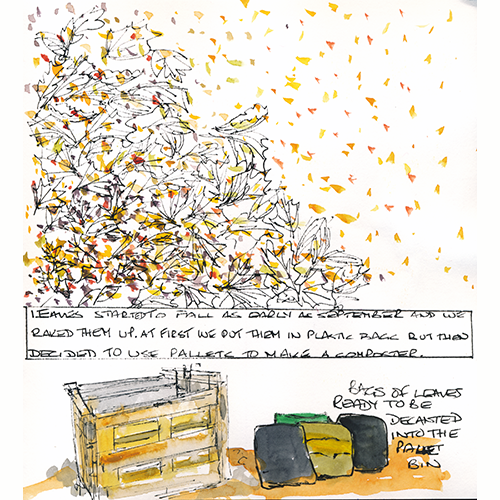 LEAVES START TO FALL AS EARLY AS SEPTEMBER AND WE
RAKED THEM UP. AT FIRST WE PUT THEM IN PLASTIC BAGS BUT THEN
DECIDED TO USE PALLETS TO MAKE A COMPOSTER.
BAGS OF LEAVES
READY TO BE
DECANTED
INTO THE
PALLET
BIN